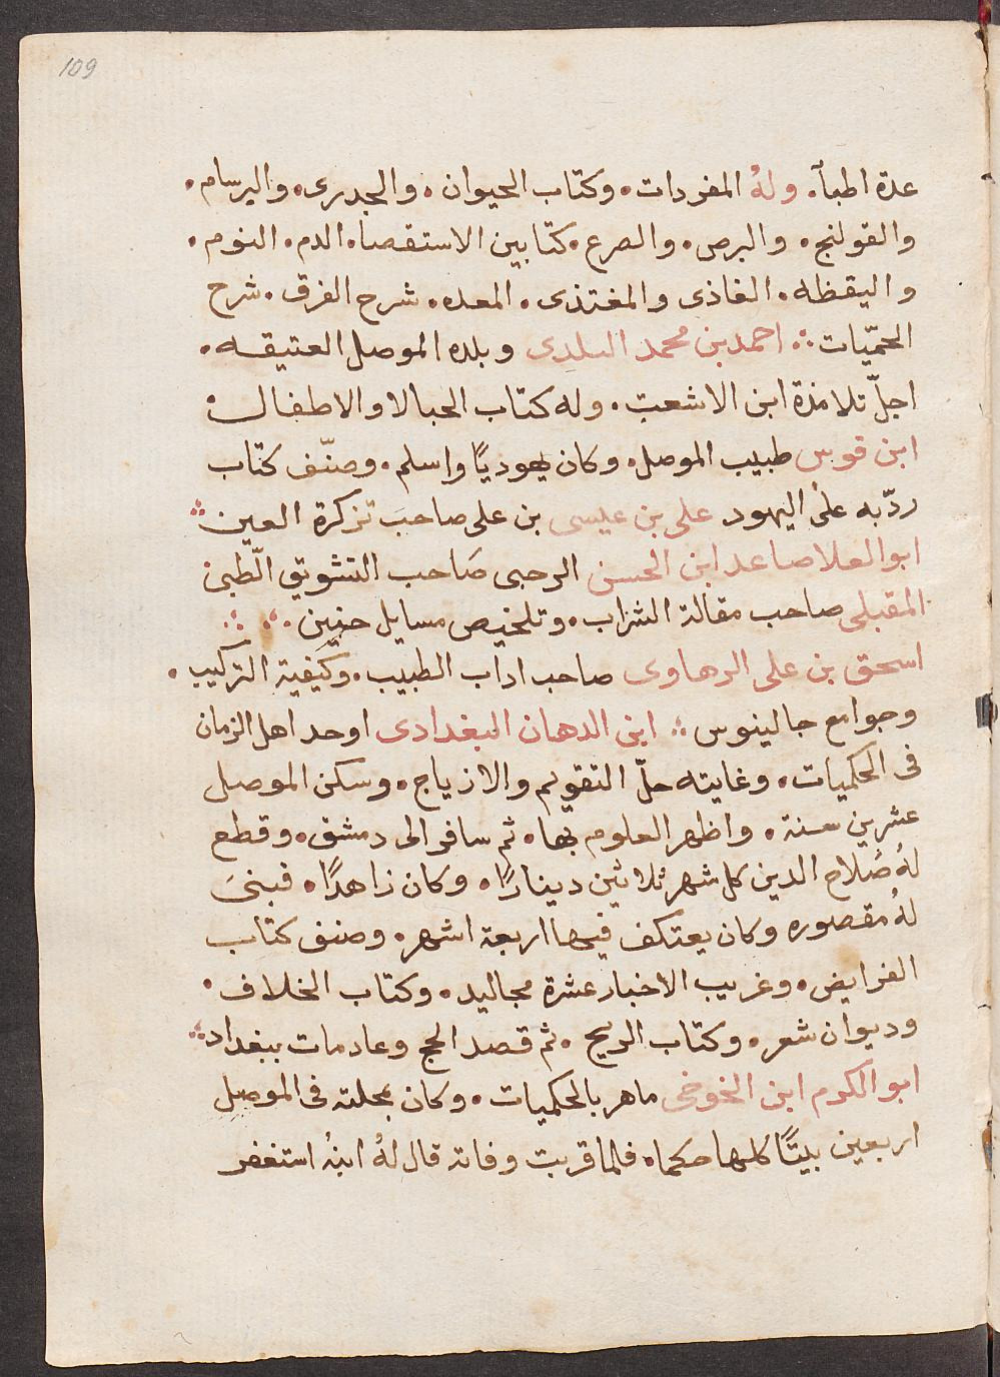 109
عدة اطبآ. وله المفردات. وكتاب الحيوان. والجدرى. والبرسام.
والقولنج. والبرص. والصرع. كتابين الاستقصا. الدم. النوم.
واليقظه. الغاذى والمغتذى. المعده. شرح الفرق. شرح
الحمّيات ∴ احمد بن محمد البلدى وبلده الموصل العتيقه.
اجلّ تلامذة ابن الاشعث. وله كتاب الحبالا والاطفال:
ابن قوس طبيب الموصل. وكان يهوديًا واسلم. وصنّف كتاب
ردّ به على اليهود على بن عيسى بن على صاحب تزكرة العين ∴
ابو العلا صاعد ابن الحسن الرحبى صاحب التشويق الطبى
المقبلى صاحب مقالة الشراب. وتلخيص مسايل حنين. ∴ ∴
اسحق بن على الرهاوى صاحب اداب الطبيب. وكيفية التركيب.
وجوامع جالينوس ∴ ابن الدهان البغدادى اوحد اهل الزمان
فى الحكميات. وغايته حلّ التقويم والازياج. وسكن الموصل
عشرين سنة. واظهر العلوم بها. ثم سافر الى دمشق. وقطع
لهُ صَلاح الدين كل شهر ثلاثين دينارًا. وكان زاهدًا. فبنىَ
لهُ مقصوره وكان يعتكف فيها اربعة اشهر. وصنف كتاب
الفرايض. وغريب الاخبار عشرة مجاليد. وكتاب الخلاف.
وديوان شعر. وكتاب الريح. ثم قصد الحج وعاد مات ببغداد ∴
ابو الكرم ابن الخوخى ماهر بالحكميات. وكان بمحلته فى الموصل
اربعين بيتًا كلها حكما. فلما قربت وفاته قال لهُ ابنُه استغفر